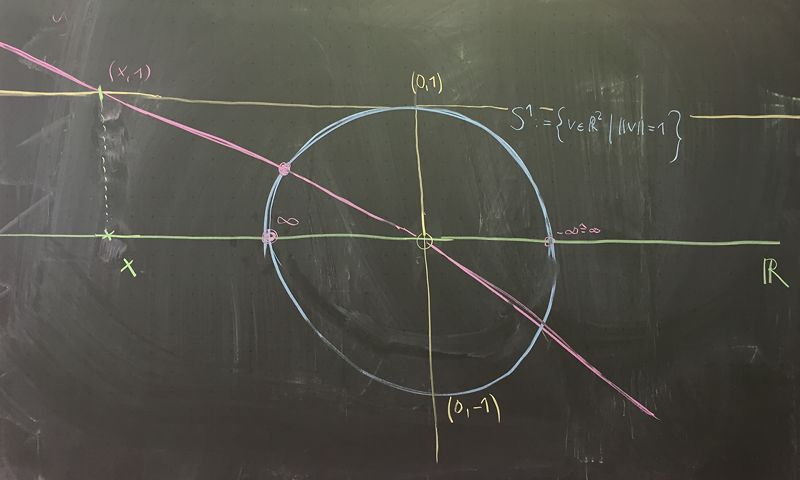 (x,1)
(0,1)
S¹:={v∈ℝ² | ||v||=1}
∞
-∞≙∞
x
ℝ
(0,-1)